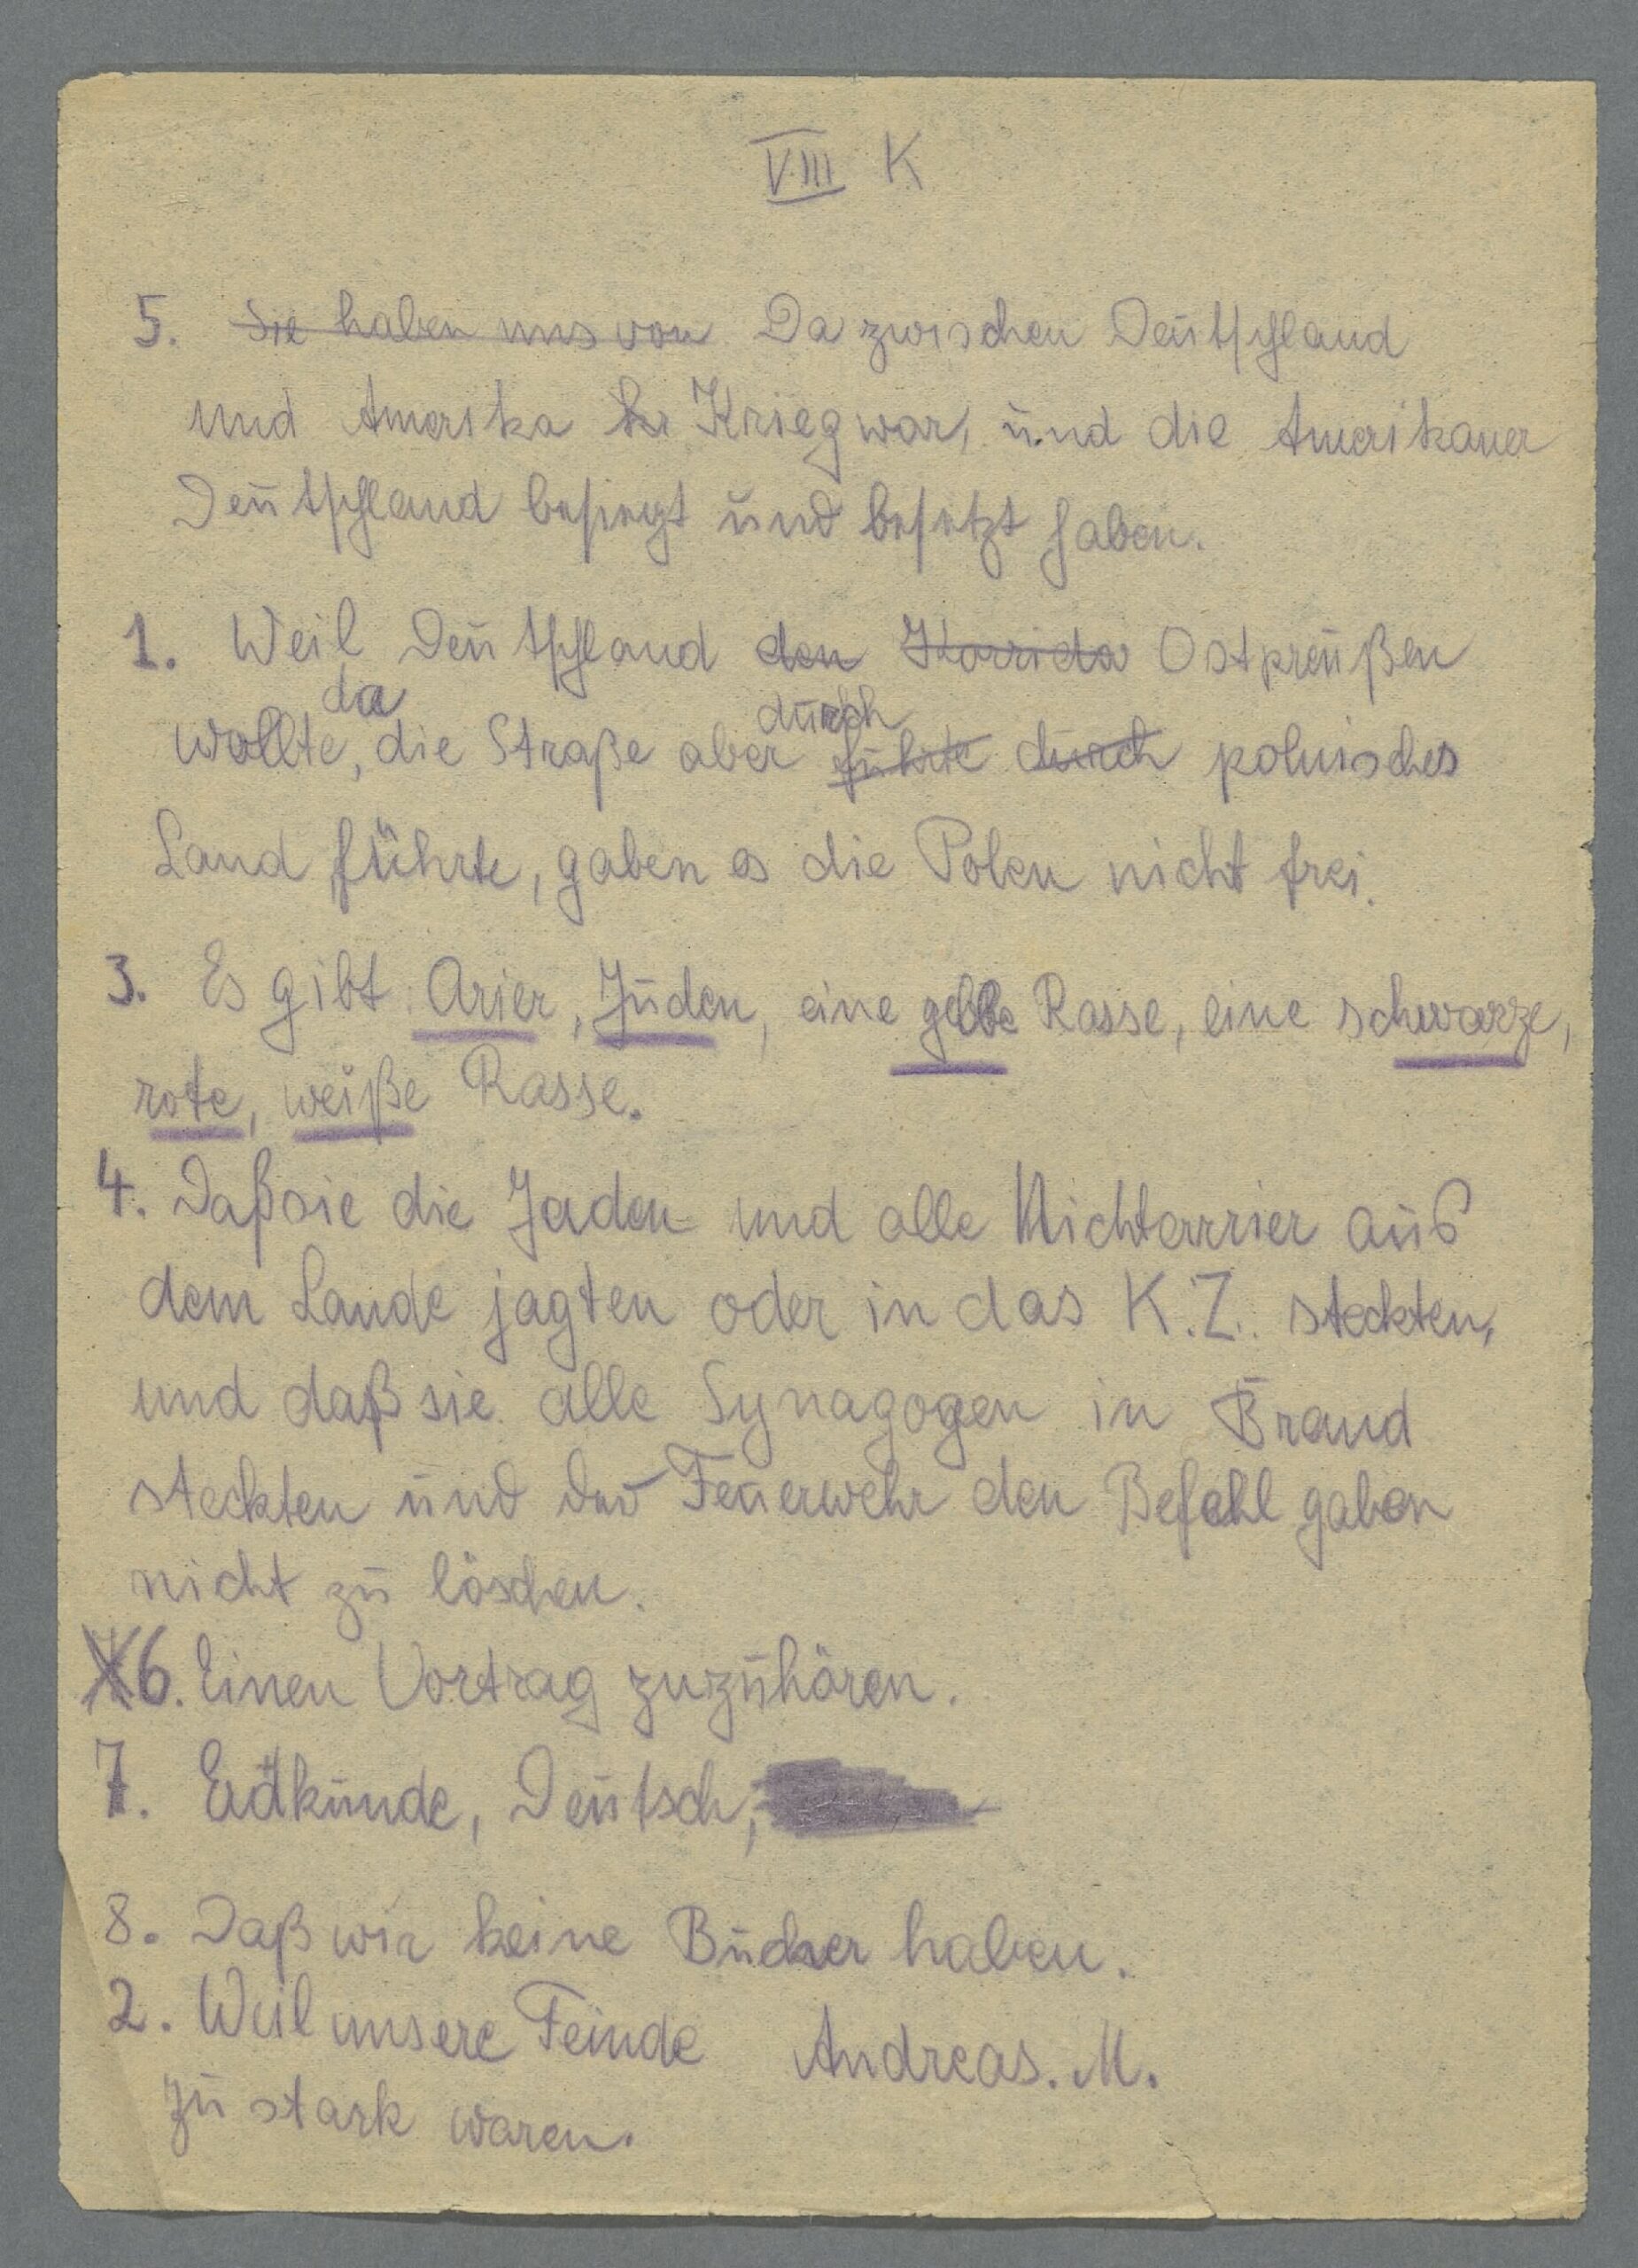 VIII K
5. Sie haben uns von Da zwischen Deutschland
und Amerika kr Krieg war, und die Amerikaner
Deutschland besiegt und besetzt haben.
1. Weil Deutschland den Korrido Ostpreußen
da durch
wollte, die Straße aber führte durch polnisches
Land führte, gaben es die Polen nicht frei.
3. Es gibt: Arier, Juden, eine gelbe Rasse, eine schwarze,
rote, weiße Rasse.
4. Daß sie die Jaden und alle Nichtarrier aus
dem Lande jagten oder in das K.Z. steckten,
und daß sie alle Synagogen in Brand
steckten und der Feuerwehr den Befehl gaben
nicht zu löschen.
6. Einen Vortrag zuzuhören.
7. Erdkunde, Deutsch,
8. Daß wir keine Bücher haben.
2. Weil unsere Feinde
zu stark waren.
Andreas. M.